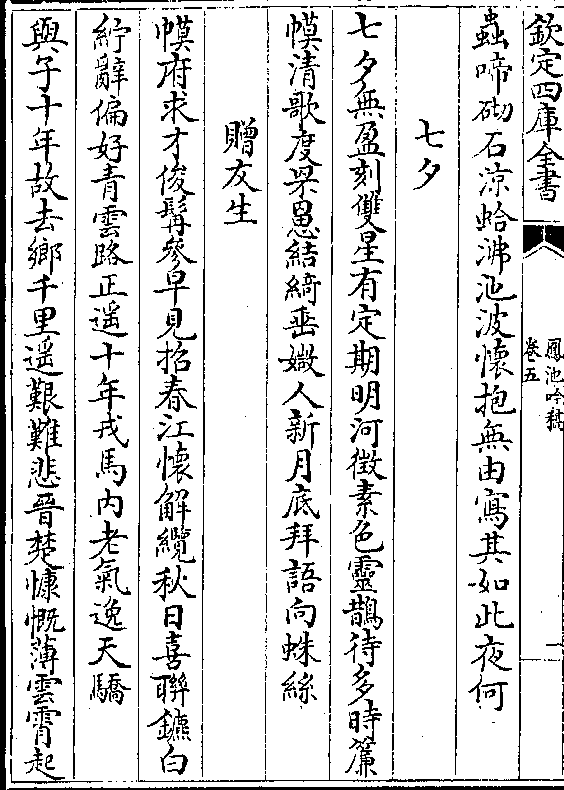 欽定四庫全書
鳳池吟稿
卷五
一
蟲啼砌石涼蛤沸池波懷抱無由寫其如此夜何
七夕
七夕無盈刻雙星有定期明河徴素色靈鵲待多時簾
幙清歌度罘罳結綺垂媺人新月底拜語向蛛絲
贈友生
幙府求才俊髯參早見招春江懷解纜秋日喜聯鑣白
紵辭偏好青雲路正遥十年戎馬内老氣逸天驕
與子十年故去鄉千里遥艱難悲晉楚慷慨薄雲霄起